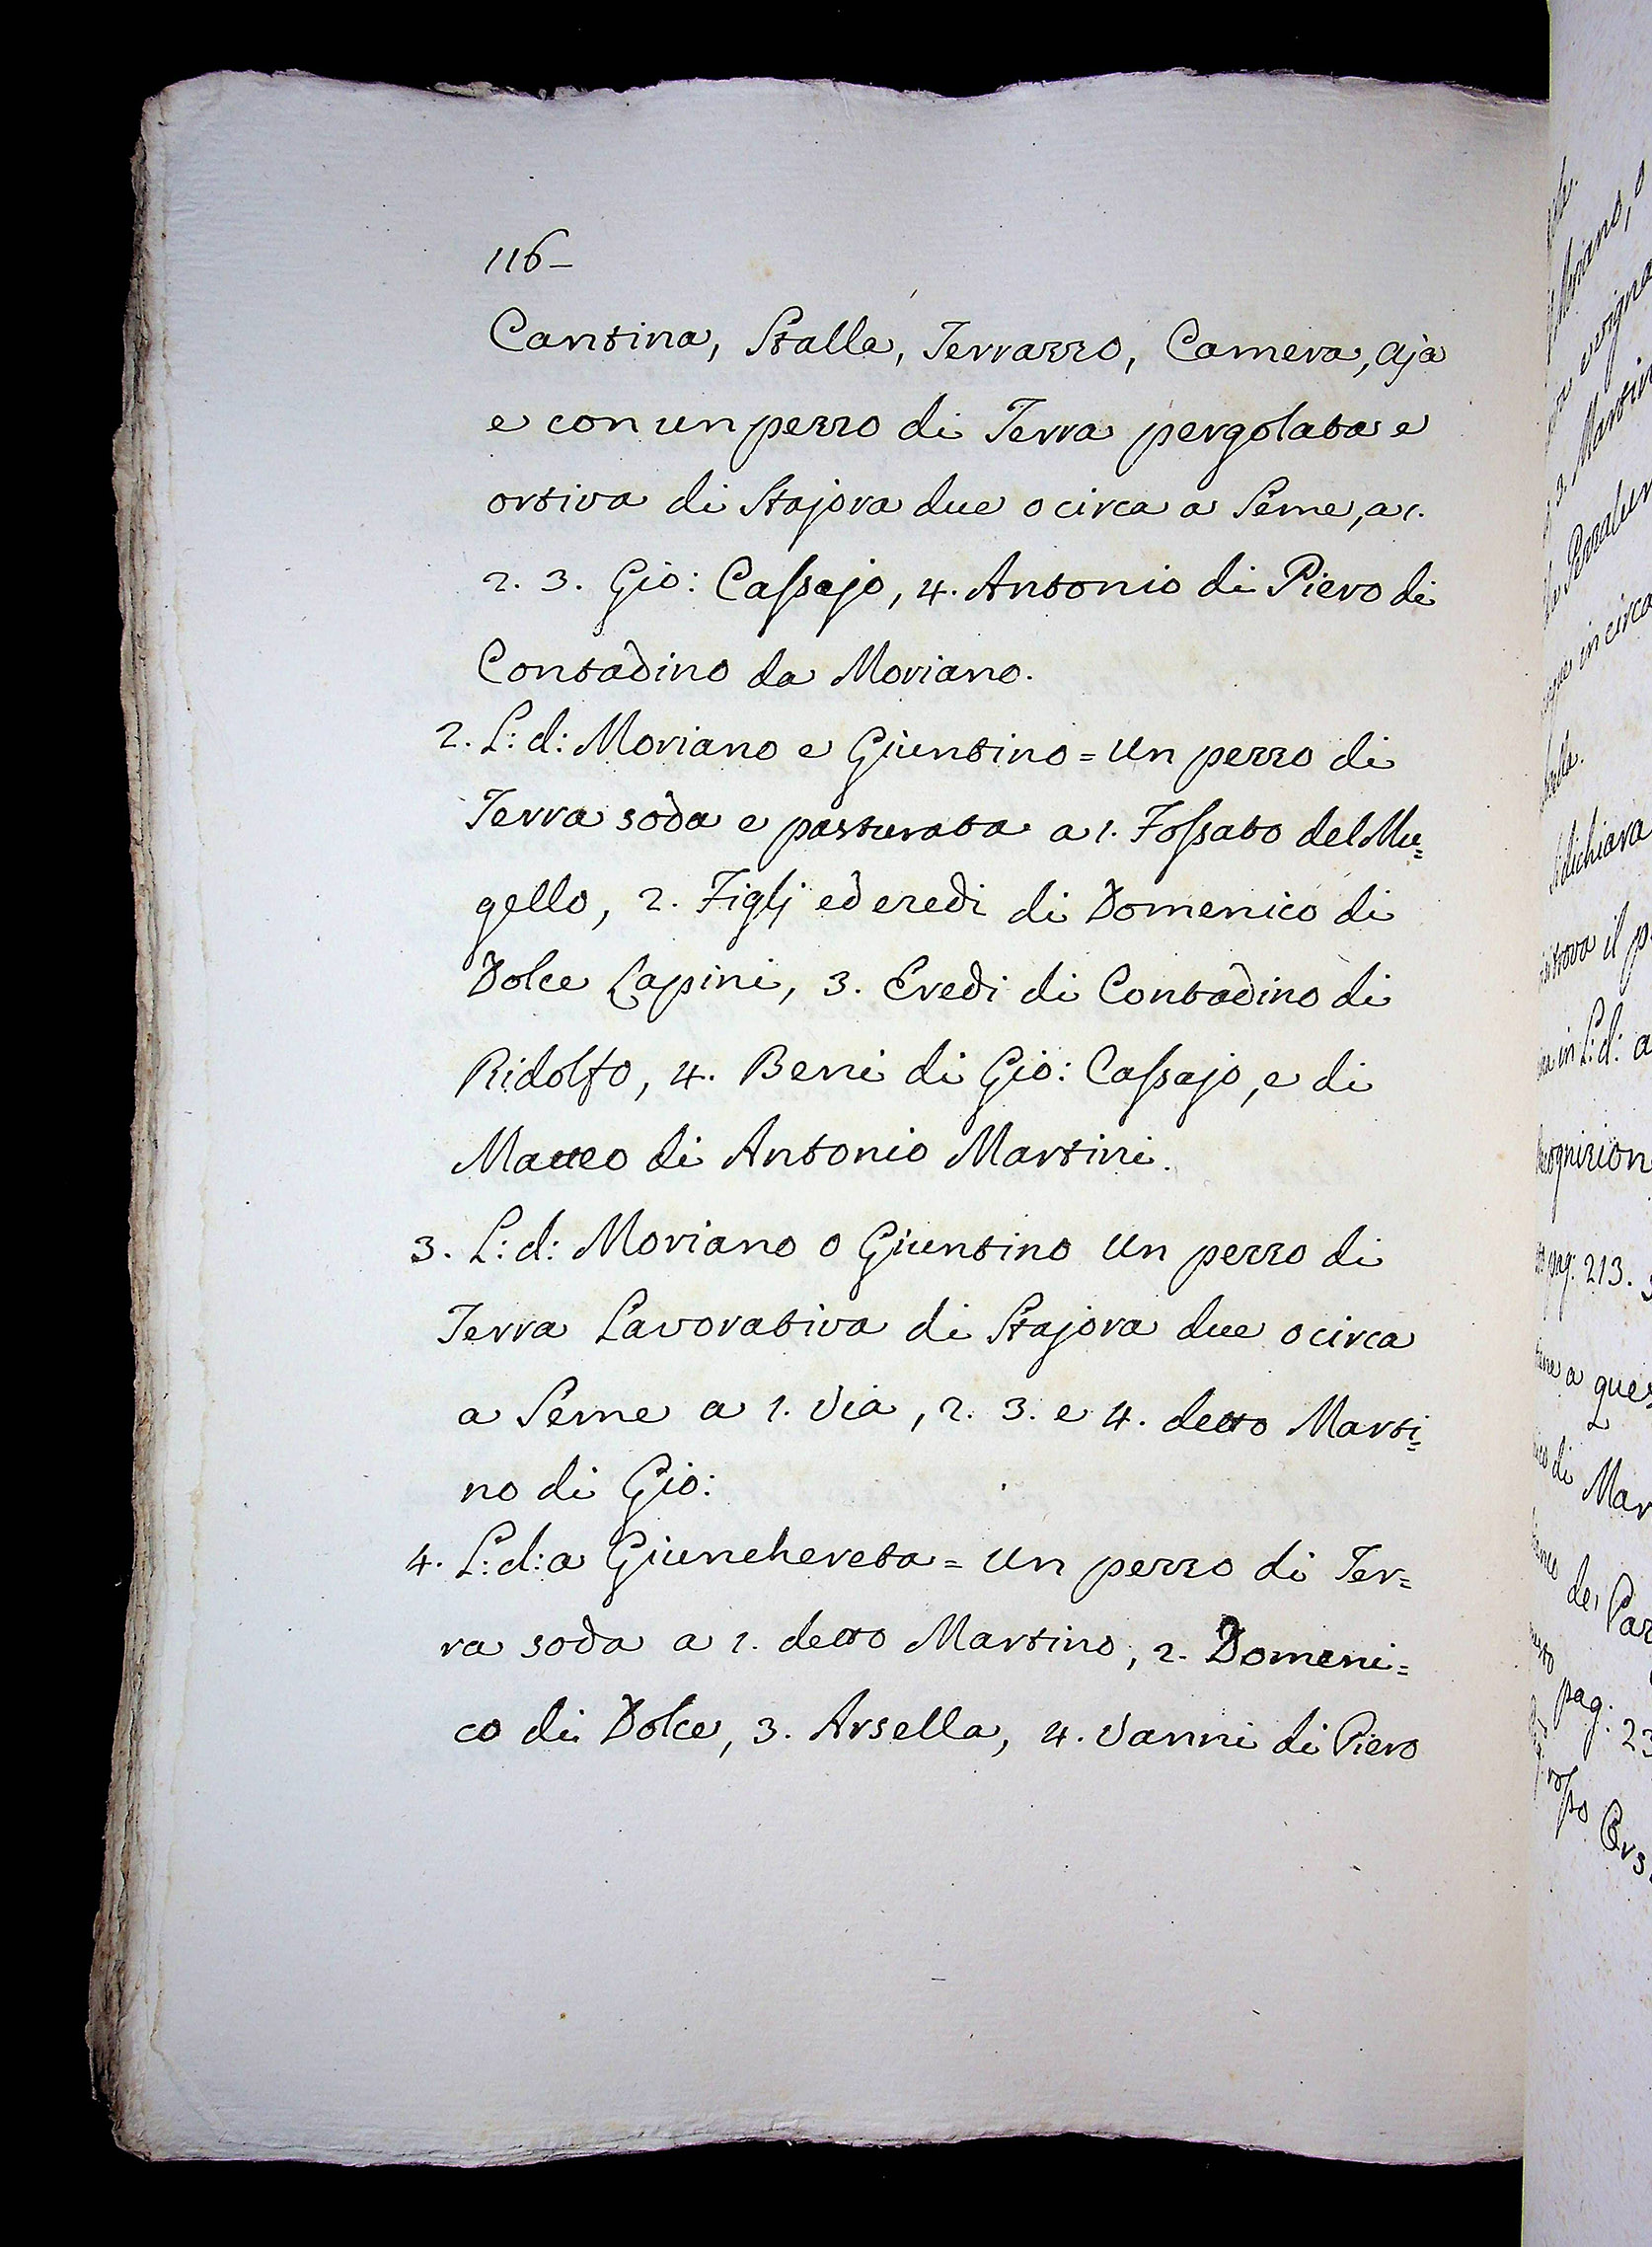 116-
Cantina, Stalle, Terrazzo, Camera, Aja
e con un pezzo di Terra pergolata e
ortiva di Stajora due o circa a Seme, a 1.
2. 3. Gio: Cassajo, 4. Antonio di Piero di
Contadino da Moriano.
2. L: d: Moriano e Giuntino = Un pezzo di
Terra soda e pasturata a 1. Fossato del Mu=
gello, 2. Figlj ed eredi di Domenico di
Dolce Lapini, 3. Eredi di Contadino di
Ridolfo, 4. Beni di Gio: Cassajo, e di
Matteo di Antonio Martini.
3. L: d: Moriano o Giuntino Un pezzo di
Terra Lavorativa di Stajora due o circa
a Seme a 1. Via, 2. 3. e 4. detto Marti=
no di Gio:
4. L: d: a Giunchereta = Un pezzo di Ter=
ra soda a 1. detto Martino, 2. Domeni=
co di Dolce, 3. Arsella, 4. Vanni di Piero
Moriano, o
vigna
3. Martin
in circa
dichiara
trova il p
in L: d: a
pag: 213.
a ques
di Mar
de, Par
pag. 23